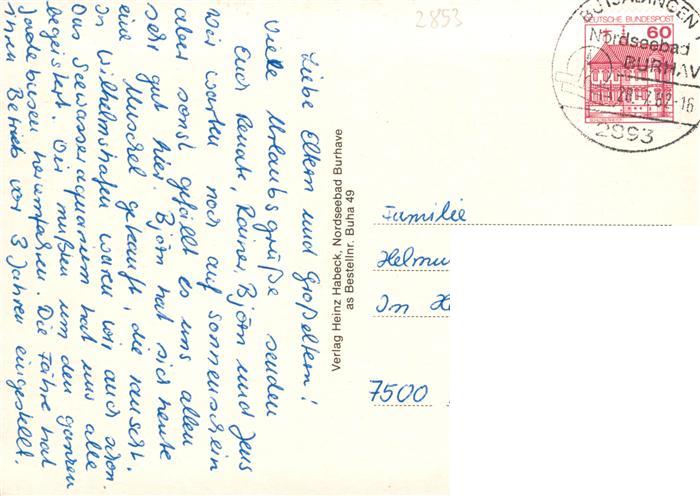 Liebe Eltern und Großeltern!
Viele Urlaubsgrüße senden
Euch Renate, Rainer, Björn und Jens
Wir warten noch auf Sonnenschein
aber sonst gefällt es uns allen
sehr gut hier. Björn hat sich heute
eine Muschel gekauft, die rauscht.
In Wilhelmshafen waren wir auch schon.
Das Seewasseraquarium hat uns alle
begeistert. Wir mußten um den ganzen
Jadebusen herumfahren. Die Fähre hat
ihren Betrieb vor 3 Jahren eingestellt.
Verlag Heinz Habeck, Nordseebad Burhave
as Bestellnr. Buha 49
2853
DEUTSCHE BUNDESPOST
60
BUTJADINGEN
Nordseebad
BURHAV
28.-7.82-16
2893
Familie
Helmu
In
7500